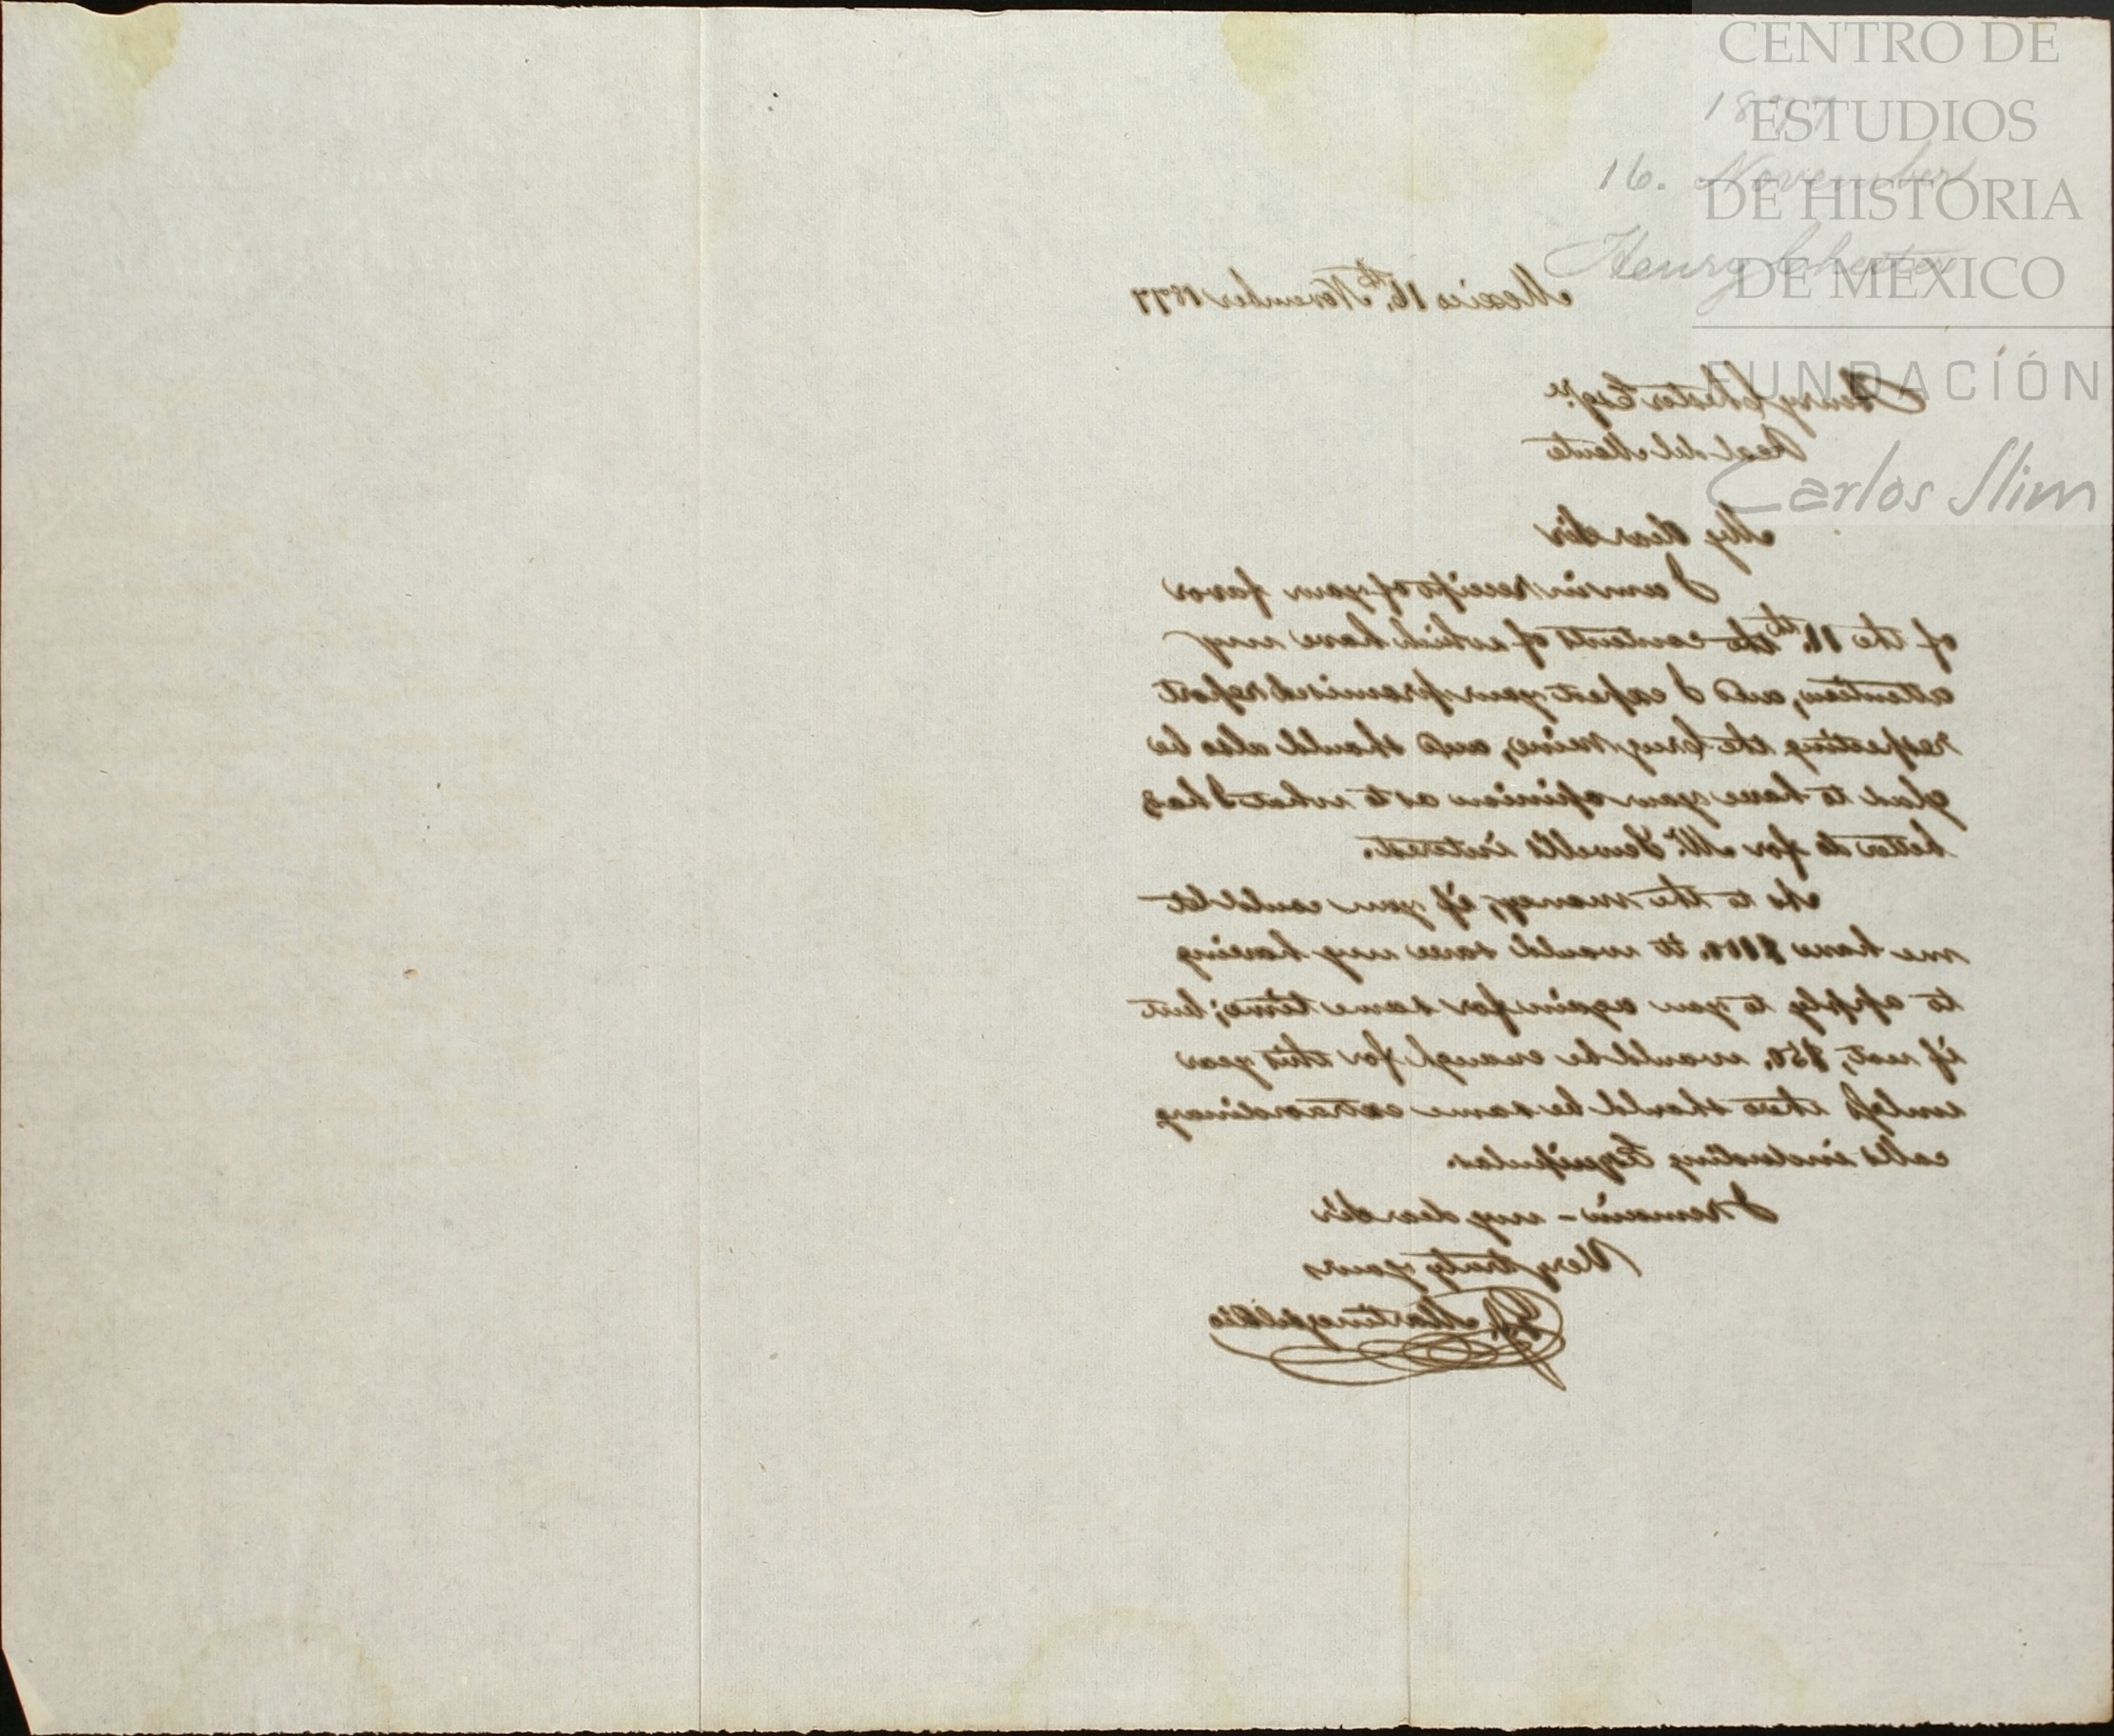 CENTRO DE
ESTUDIOS
DE HISTORIA
DE MÉXICO
FUNDACIÓN
Carlos Slim
1877
16. November
Henry Chester
Mexico 16th November 1877
Henry Chester Esqre
Real del Monte
My dear Sir
I am in receipt of your favor
of the 11th the contents of which have my
attention, and I expect your promised report
respecting the Cruz Mine, and should also be
glad to have your opinion as to what I had
better do for Mr. Sewell's interest.
As to the money, if you could let
me have $100. it would save my having
to apply to you again for some time; but
if not, $50. would be enough for this year
unless there should be some extraordinary
calls including Esquipulas.
I remain - my dear Sir
Very truly yours
Martinez del Rio